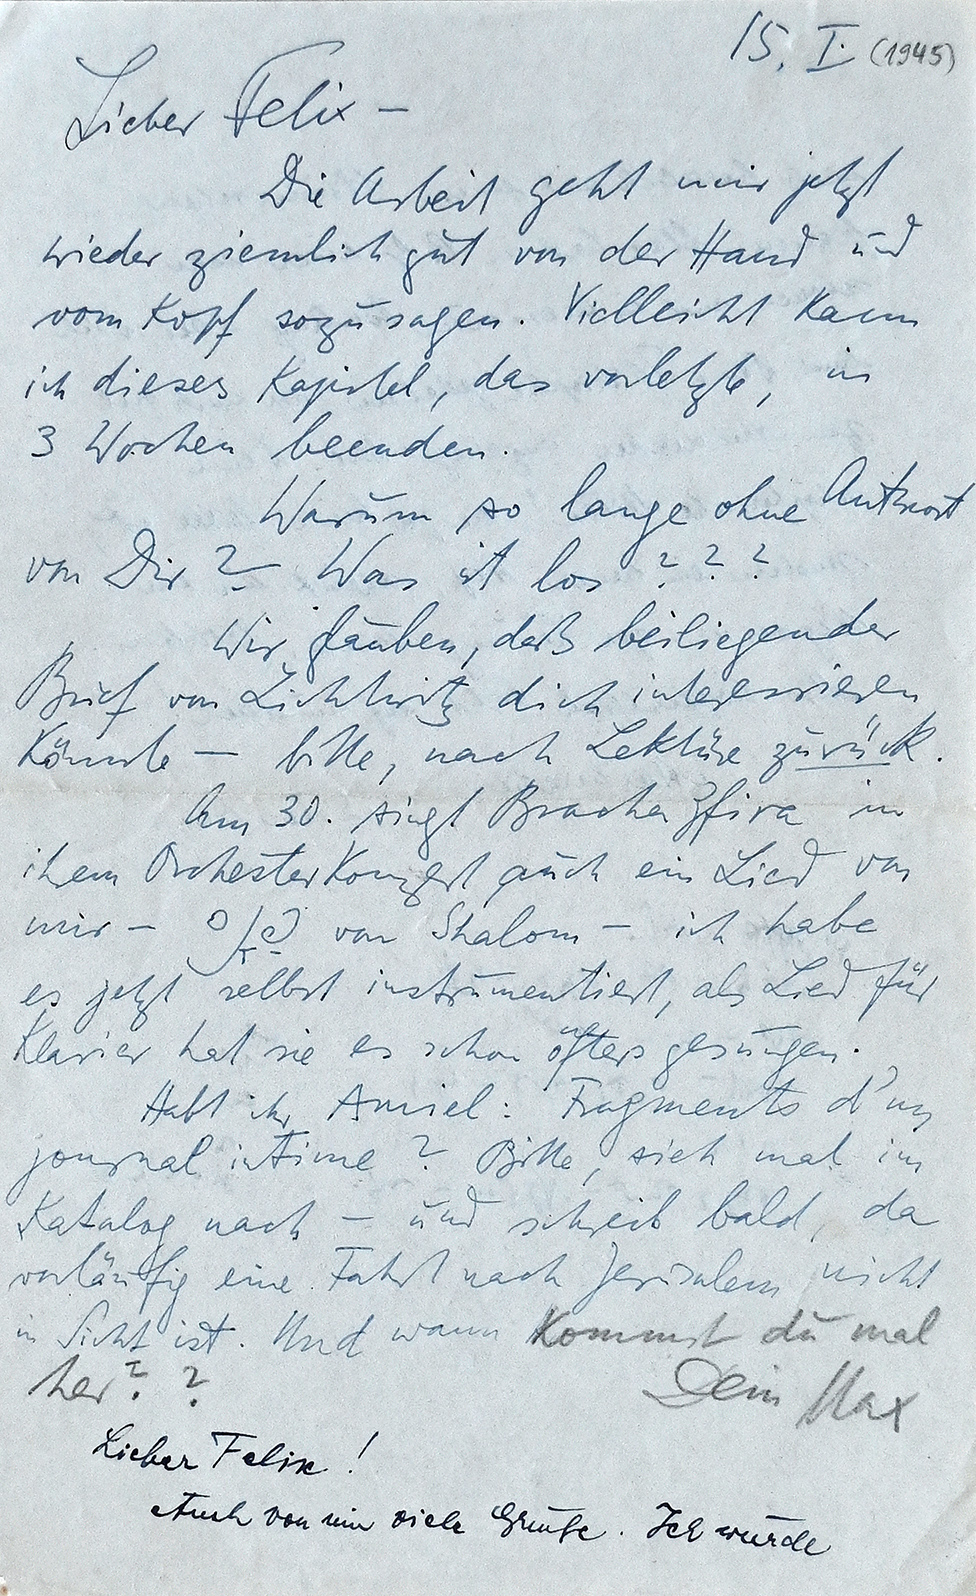 15. I. (1945)
Lieber Felix –
Die Arbeit geht mir jetzt
wieder ziemlich gut von der Hand und
vom Kopf sozusagen. Vielleicht kann
ich dieses Kapitel, das vorletzte, in
3 Wochen beenden.
Warum so lange ohne Antwort
von Dir? – Was ist los ? ? ?
Wir glauben, daß beiliegender
Brief von Lichtwitz dich interessieren
könnte – bitte, nach Lektüre zurück.
Am 30. singt Bracha Zfira in
ihrem Orchesterkonzert auch ein Lied von
mir – von Shalom – ich habe
es jetzt selbst instrumentiert, als Lied für
Klavier hat sie es schon öfters gesungen.
Habt ihr Amiel: Fragments d'un
journal intime ? Bitte, sieh mal im
Katalog nach – und schreib bald, da
vorläufig eine Fahrt nach Jerusalem nicht
in Sicht ist. Und wann kommst du mal
her? ?
Dein Max
Lieber Felix !
Auch von mir viele Grüße. Ich würde